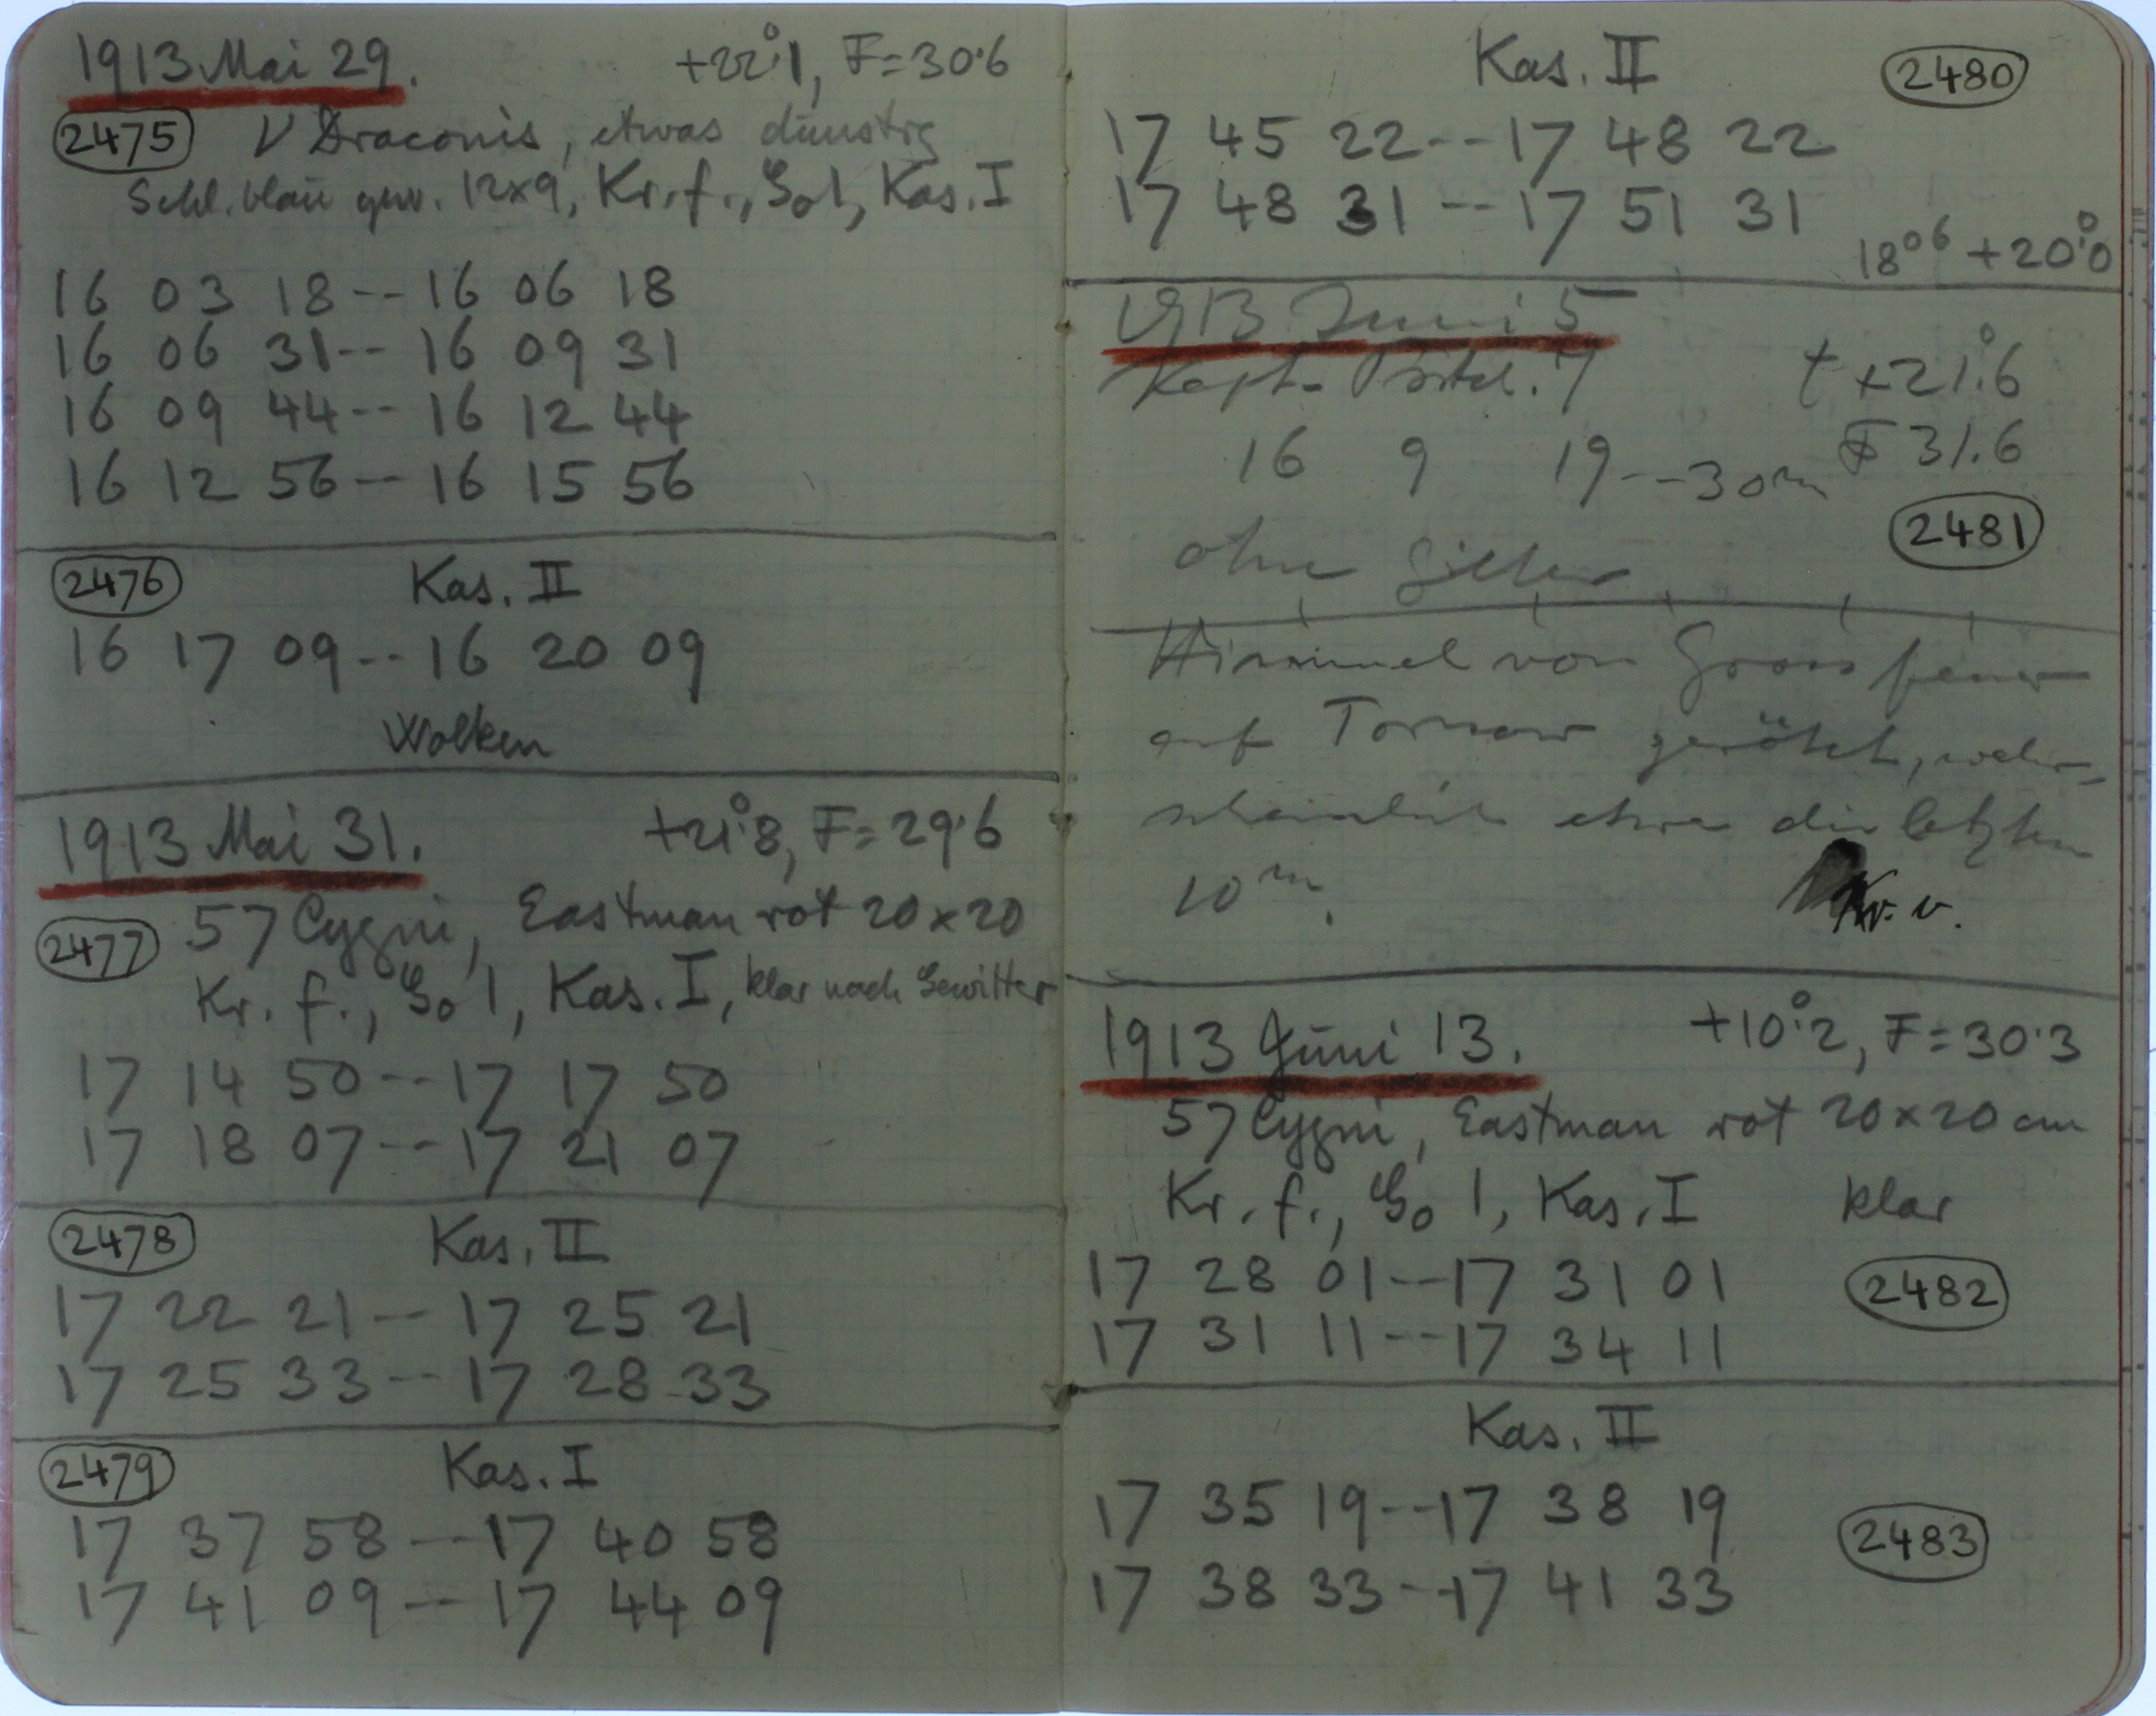 1913 Mai 29. +22°.1, F=30.6
2475 ν Draconis, etwas dunstig
Schl. blau gew. 12x9, Kr. f., Go 1, Kas. I
16 03 18 -- 16 06 18
16 06 31 -- 16 09 31
16 09 44 -- 16 12 44
16 12 56 -- 16 15 56
2476 Kas. II
16 17 09 -- 16 20 09
Wolken
1913 Mai 31. +21°.8, F=29.6
2477 57 Cygni, Eastman rot 20x20
Kr. f., Go 1, Kas. I, klar nach Gewitter
17 14 50 -- 17 17 50
17 18 07 -- 17 21 07
2478 Kas. II
17 22 21 -- 17 25 21
17 25 33 -- 17 28 33
2479 Kas. I
17 37 58 -- 17 40 58
17 41 09 -- 17 44 09
Kas. II 2480
17 45 22 -- 17 48 22
17 48 31 -- 17 51 31
18 06 +20°.0
1913 Juni 5
t +21°.6
16 9 19 -- 30m F 31.6
2481
ohne Gitter
Himmel von Grossfeuer
auf Tornow gerötet, wahr-
scheinlich etwa die letzten
10 m. Kr. v.
1913 Juni 13. +10°.2, F=30.3
57 Cygni, Eastman rot 20x20 cm
Kr. f., Go 1, Kas. I klar
17 28 01 -- 17 31 01 2482
17 31 11 -- 17 34 11
Kas. II
17 35 19 -- 17 38 19 2483
17 38 33 -- 17 41 33